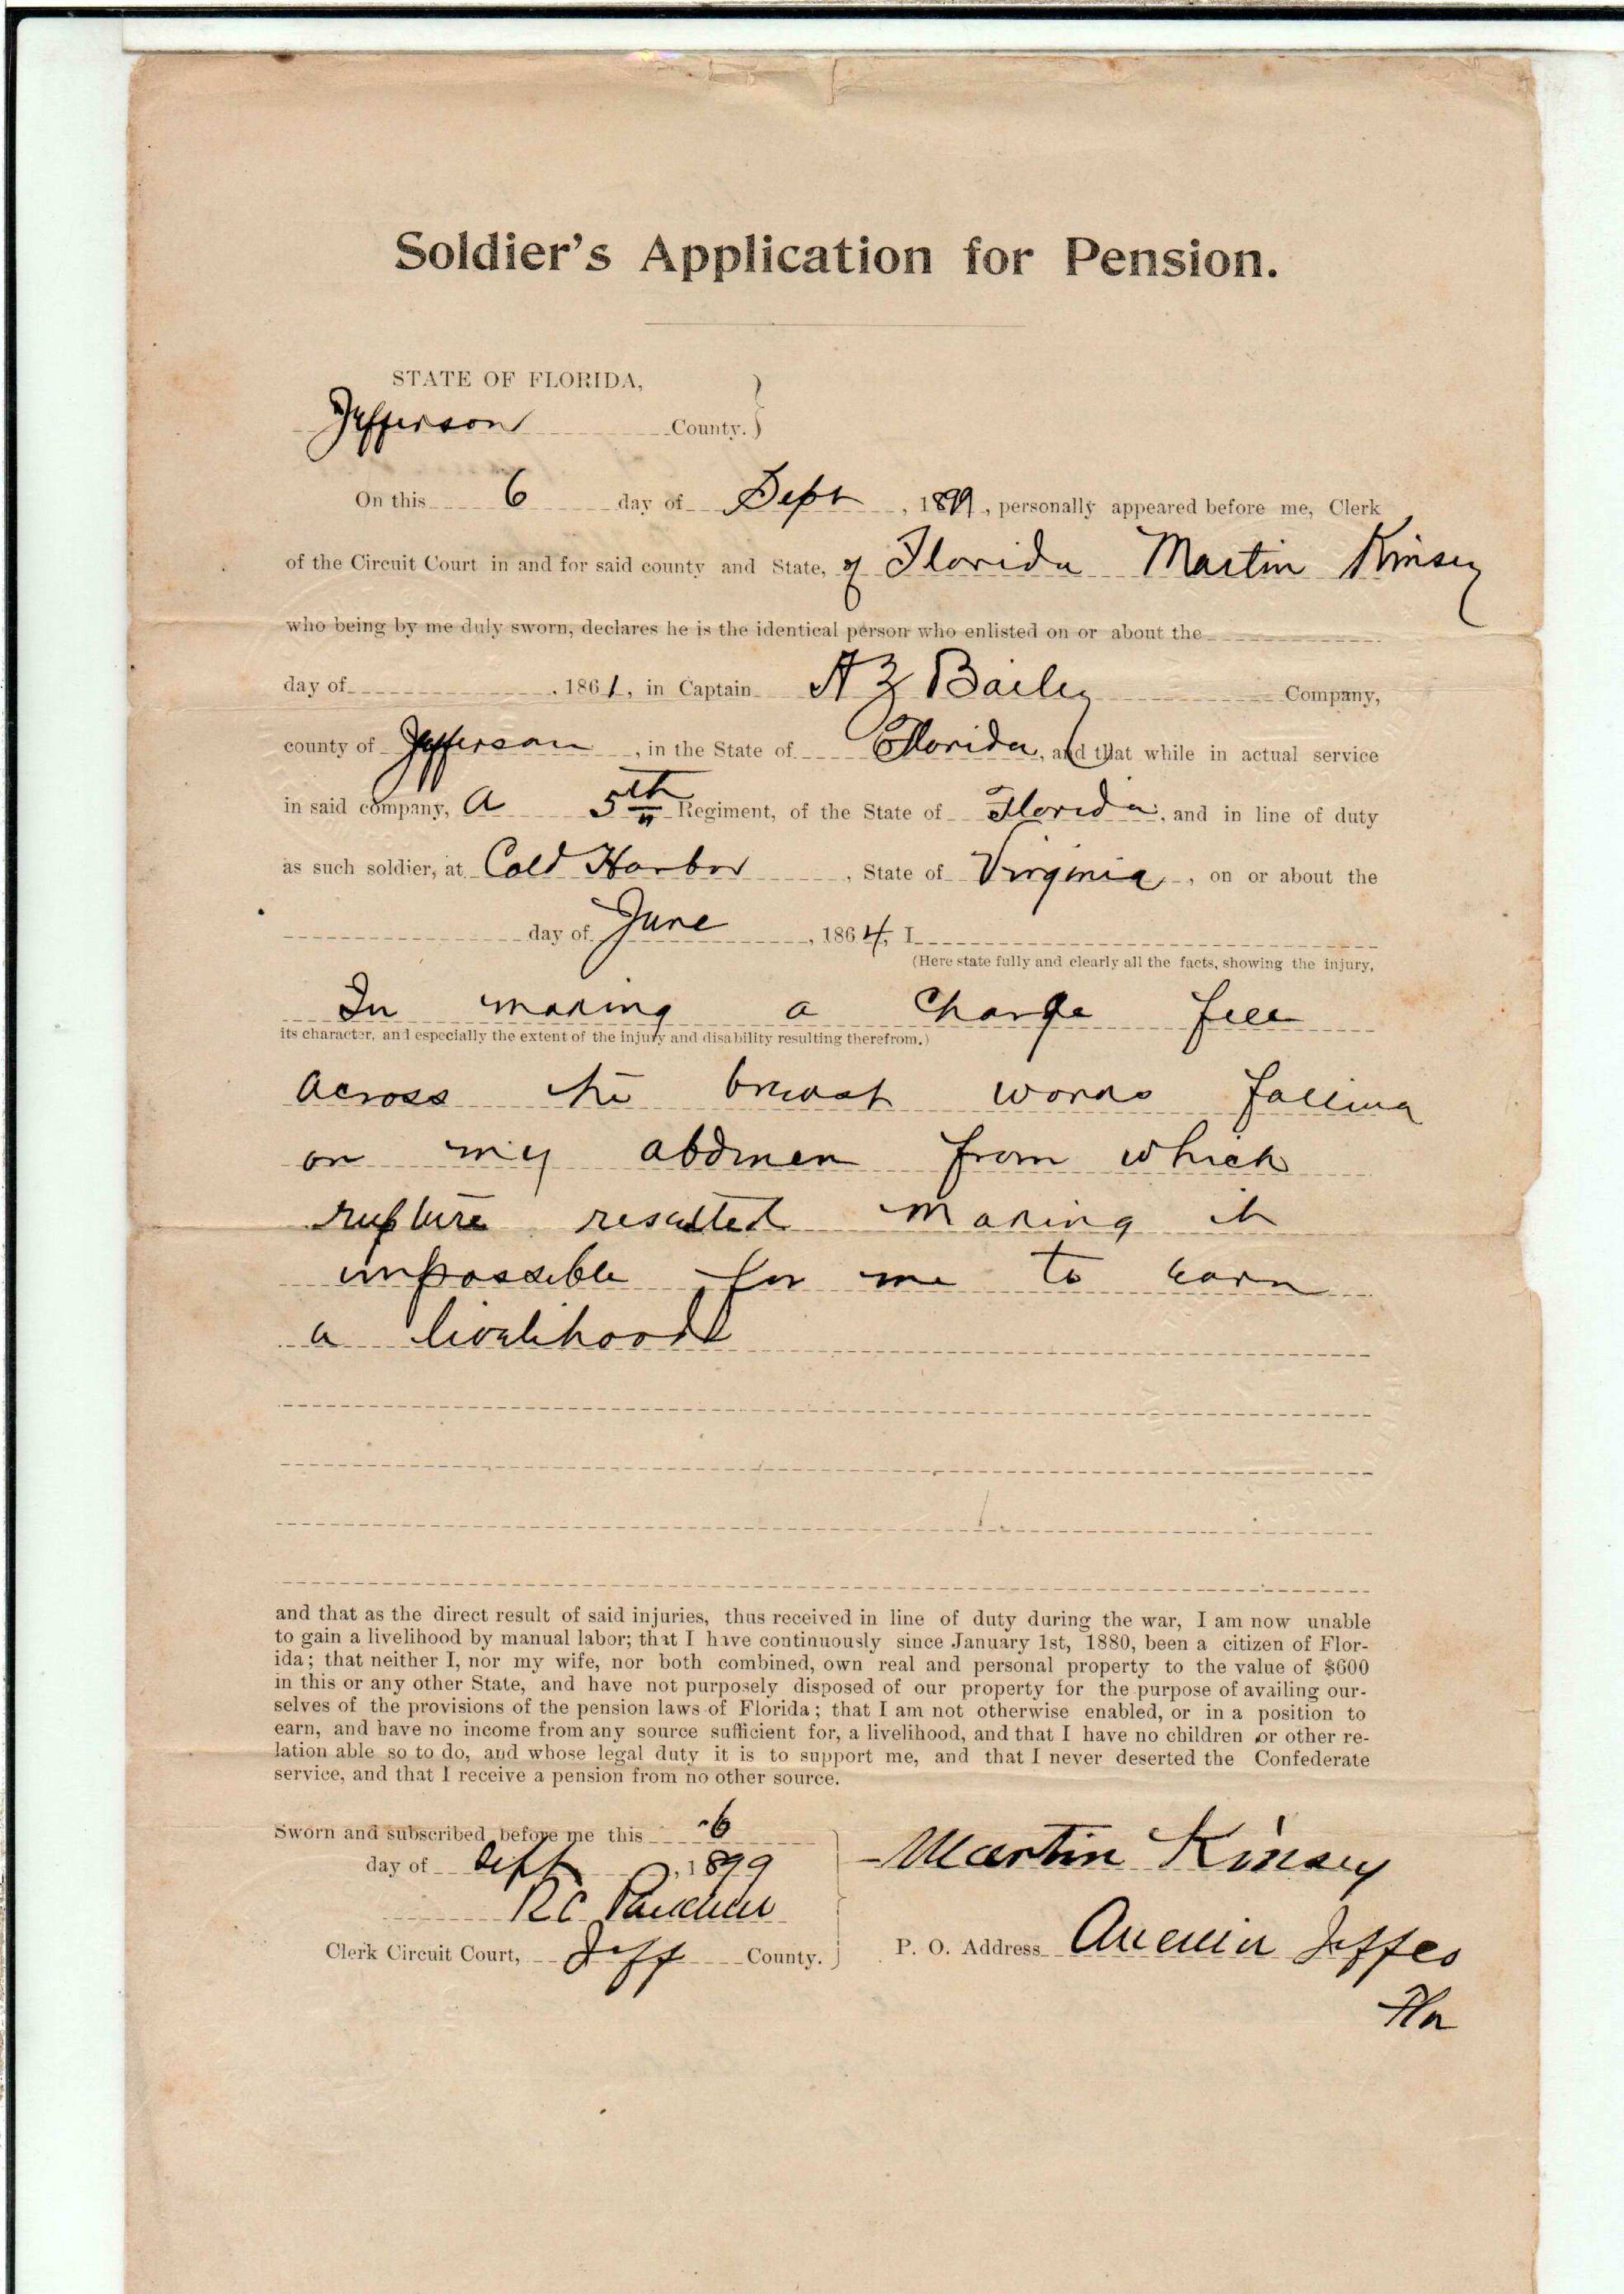 Soldier's Application for Pension.
STATE OF FLORIDA,
Jefferson County.
On this 6 day of Sept, 1899, personally appeared before me, Clerk
of the Circuit Court in and for said county and State, of Florida Martin Kinsey
who being by me duly sworn, declares he is the identical person who enlisted on or about the
day of , 1861, in Captain A Z Bailey Company,
county of Jefferson, in the State of Florida, and that while in actual service
in said company, A 5th Regiment, of the State of Florida, and in line of duty
as such soldier, at Cold Harbor, State of Virginia, on or about the
day of June, 1864, I
(Here state fully and clearly all the facts, showing the injury,
In making a charge fell
its character, and especially the extent of the injury and disability resulting therefrom.)
across the breast works falling
on my abdmen from which
rupture resulted making it
impossible for me to earn
a livelihood
and that as the direct result of said injuries, thus received in line of duty during the war, I am now unable
to gain a livelihood by manual labor; that I have continuously since January 1st, 1880, been a citizen of Flor-
ida; that neither I, nor my wife, nor both combined, own real and personal property to the value of $600
in this or any other State, and have not purposely disposed of our property for the purpose of availing our-
selves of the provisions of the pension laws of Florida; that I am not otherwise enabled, or in a position to
earn, and have no income from any source sufficient for, a livelihood, and that I have no children or other re-
lation able so to do, and whose legal duty it is to support me, and that I never deserted the Confederate
service, and that I receive a pension from no other source.
Sworn and subscribed before me this 6
day of Sept, 1899
Martin Kinsey
R C
Clerk Circuit Court, Jeff County.
P. O. Address Jeffes
Fla